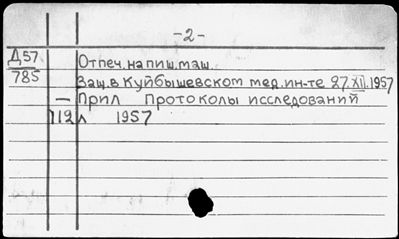 -2-
Д57 Отпеч. на пиш. маш.
785 Защ. в Куйбышевском мед. ин-те 27.XII.1957
— Прил Протоколы исследований
112 л 1957